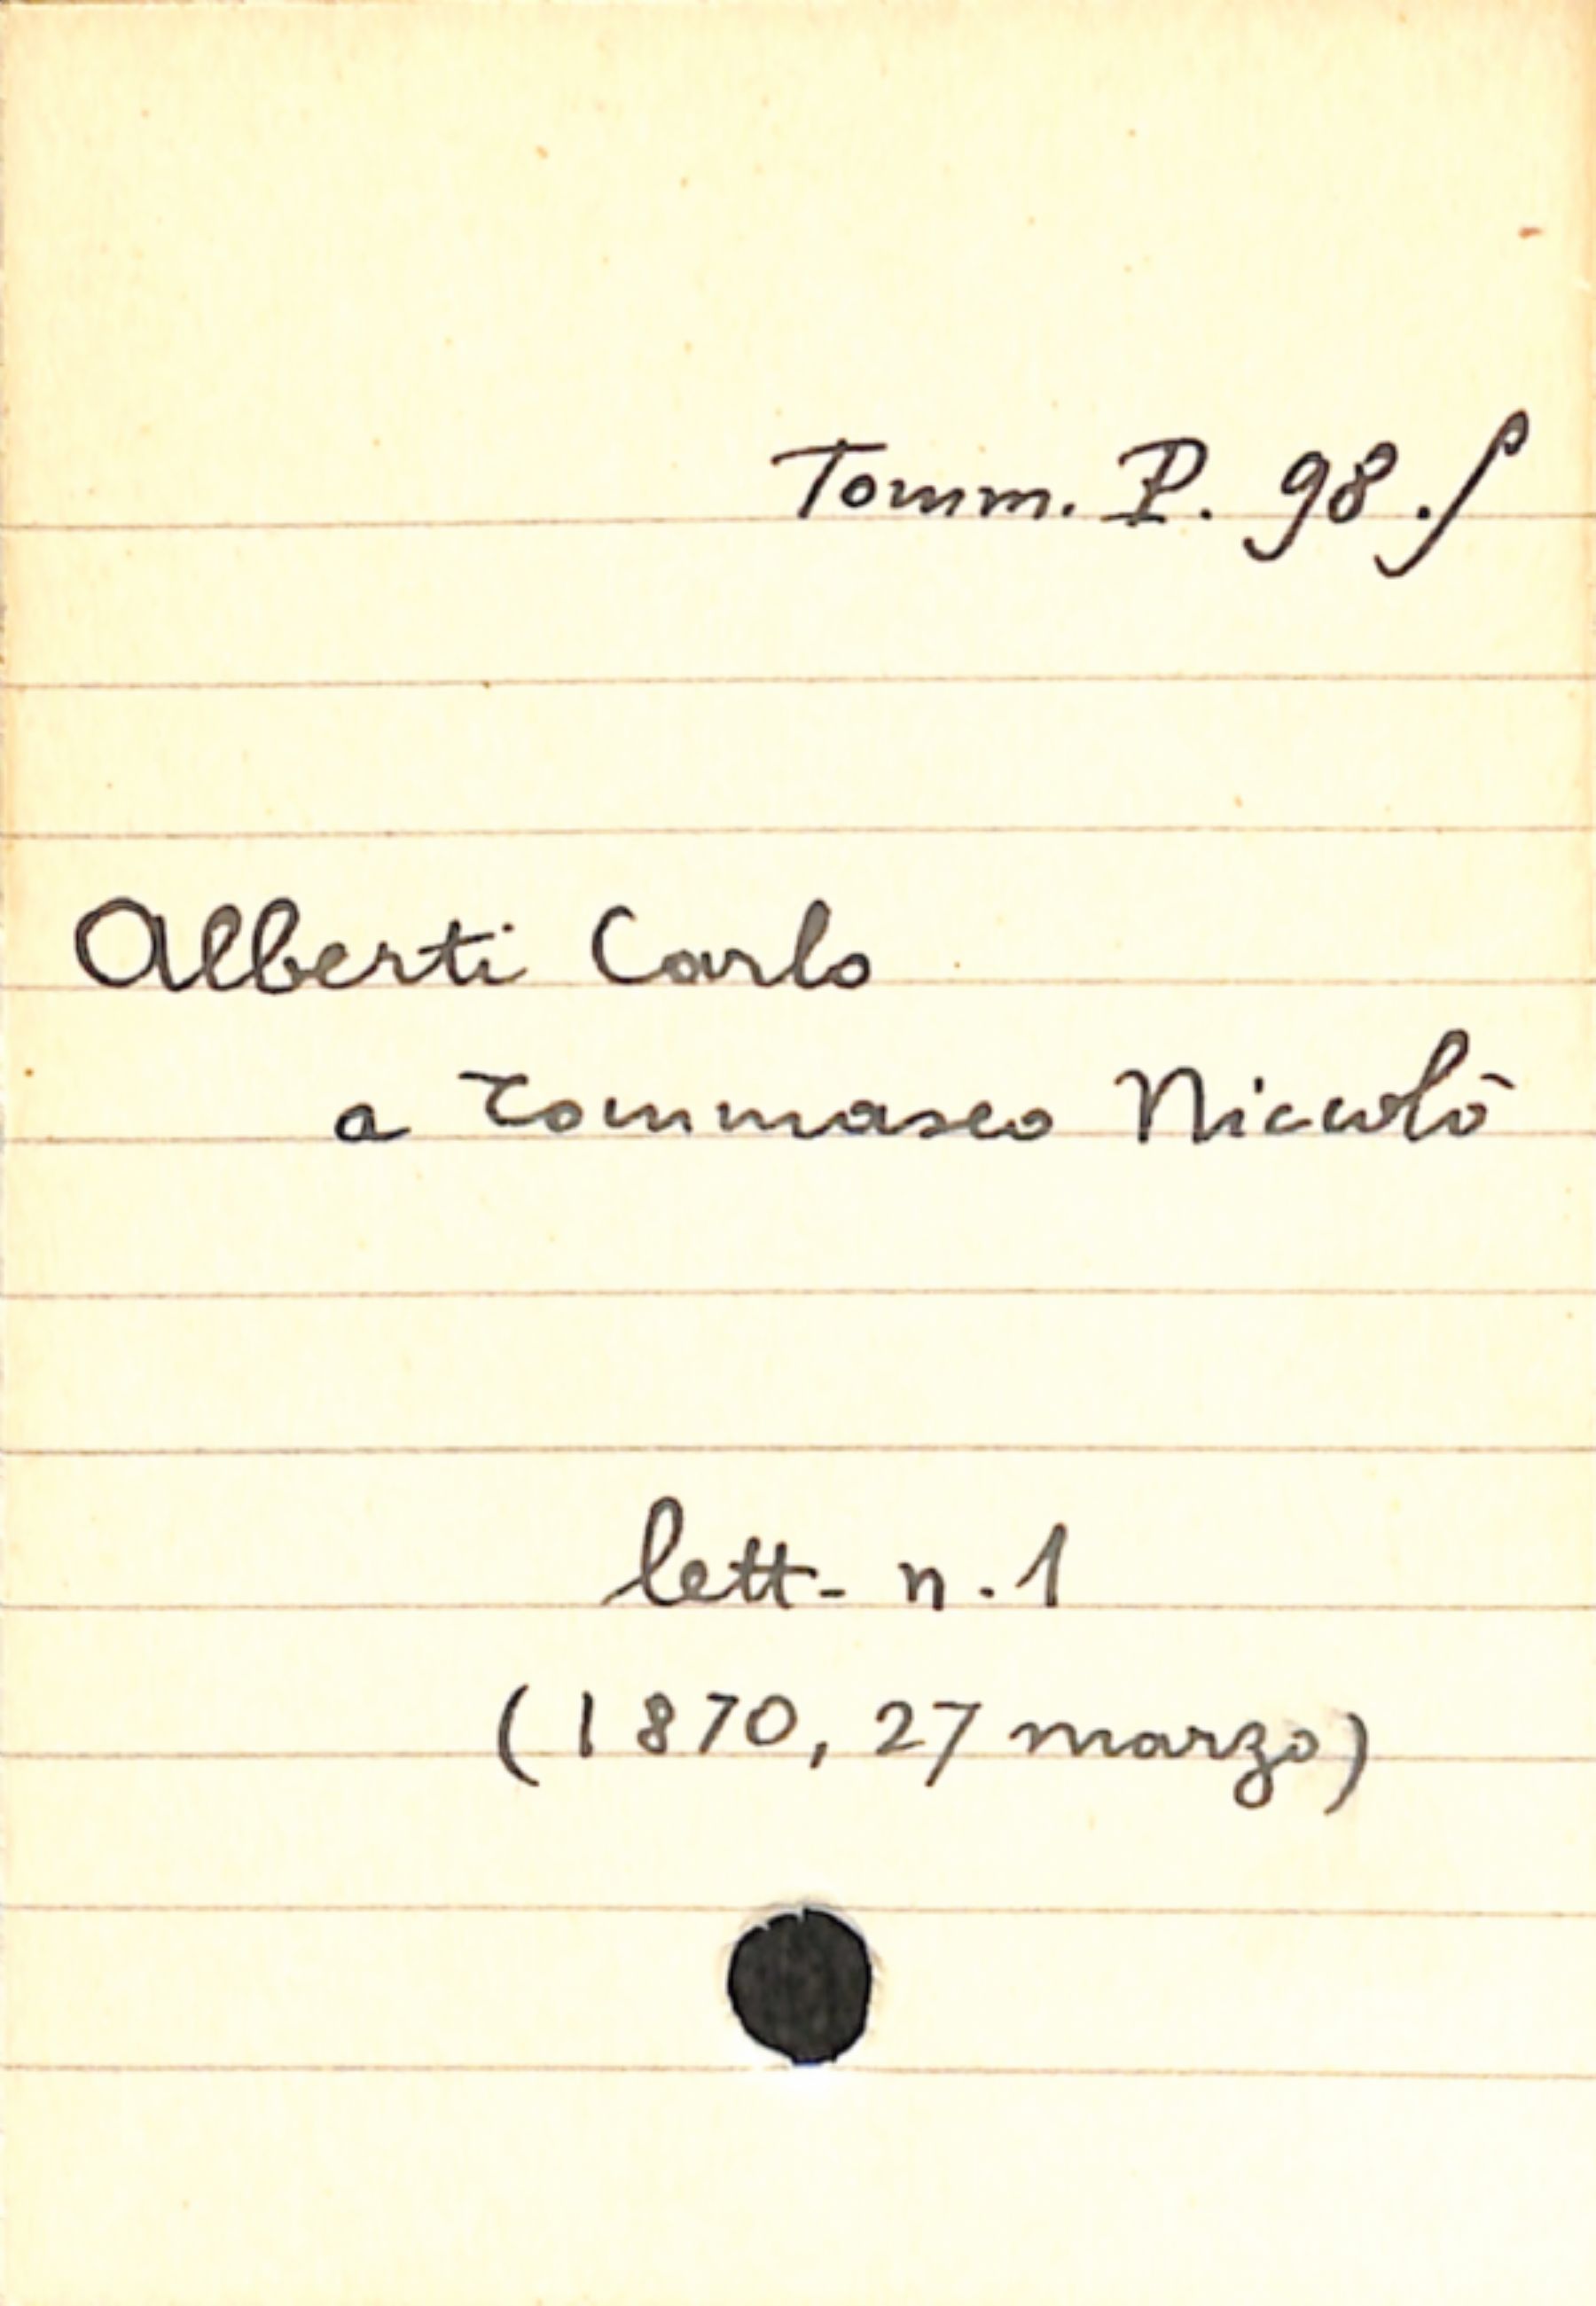 Tomm. P. 98.
Alberti Carlo
a Tommaseo Niccolò
lett- n. 1
(1870, 27 marzo)